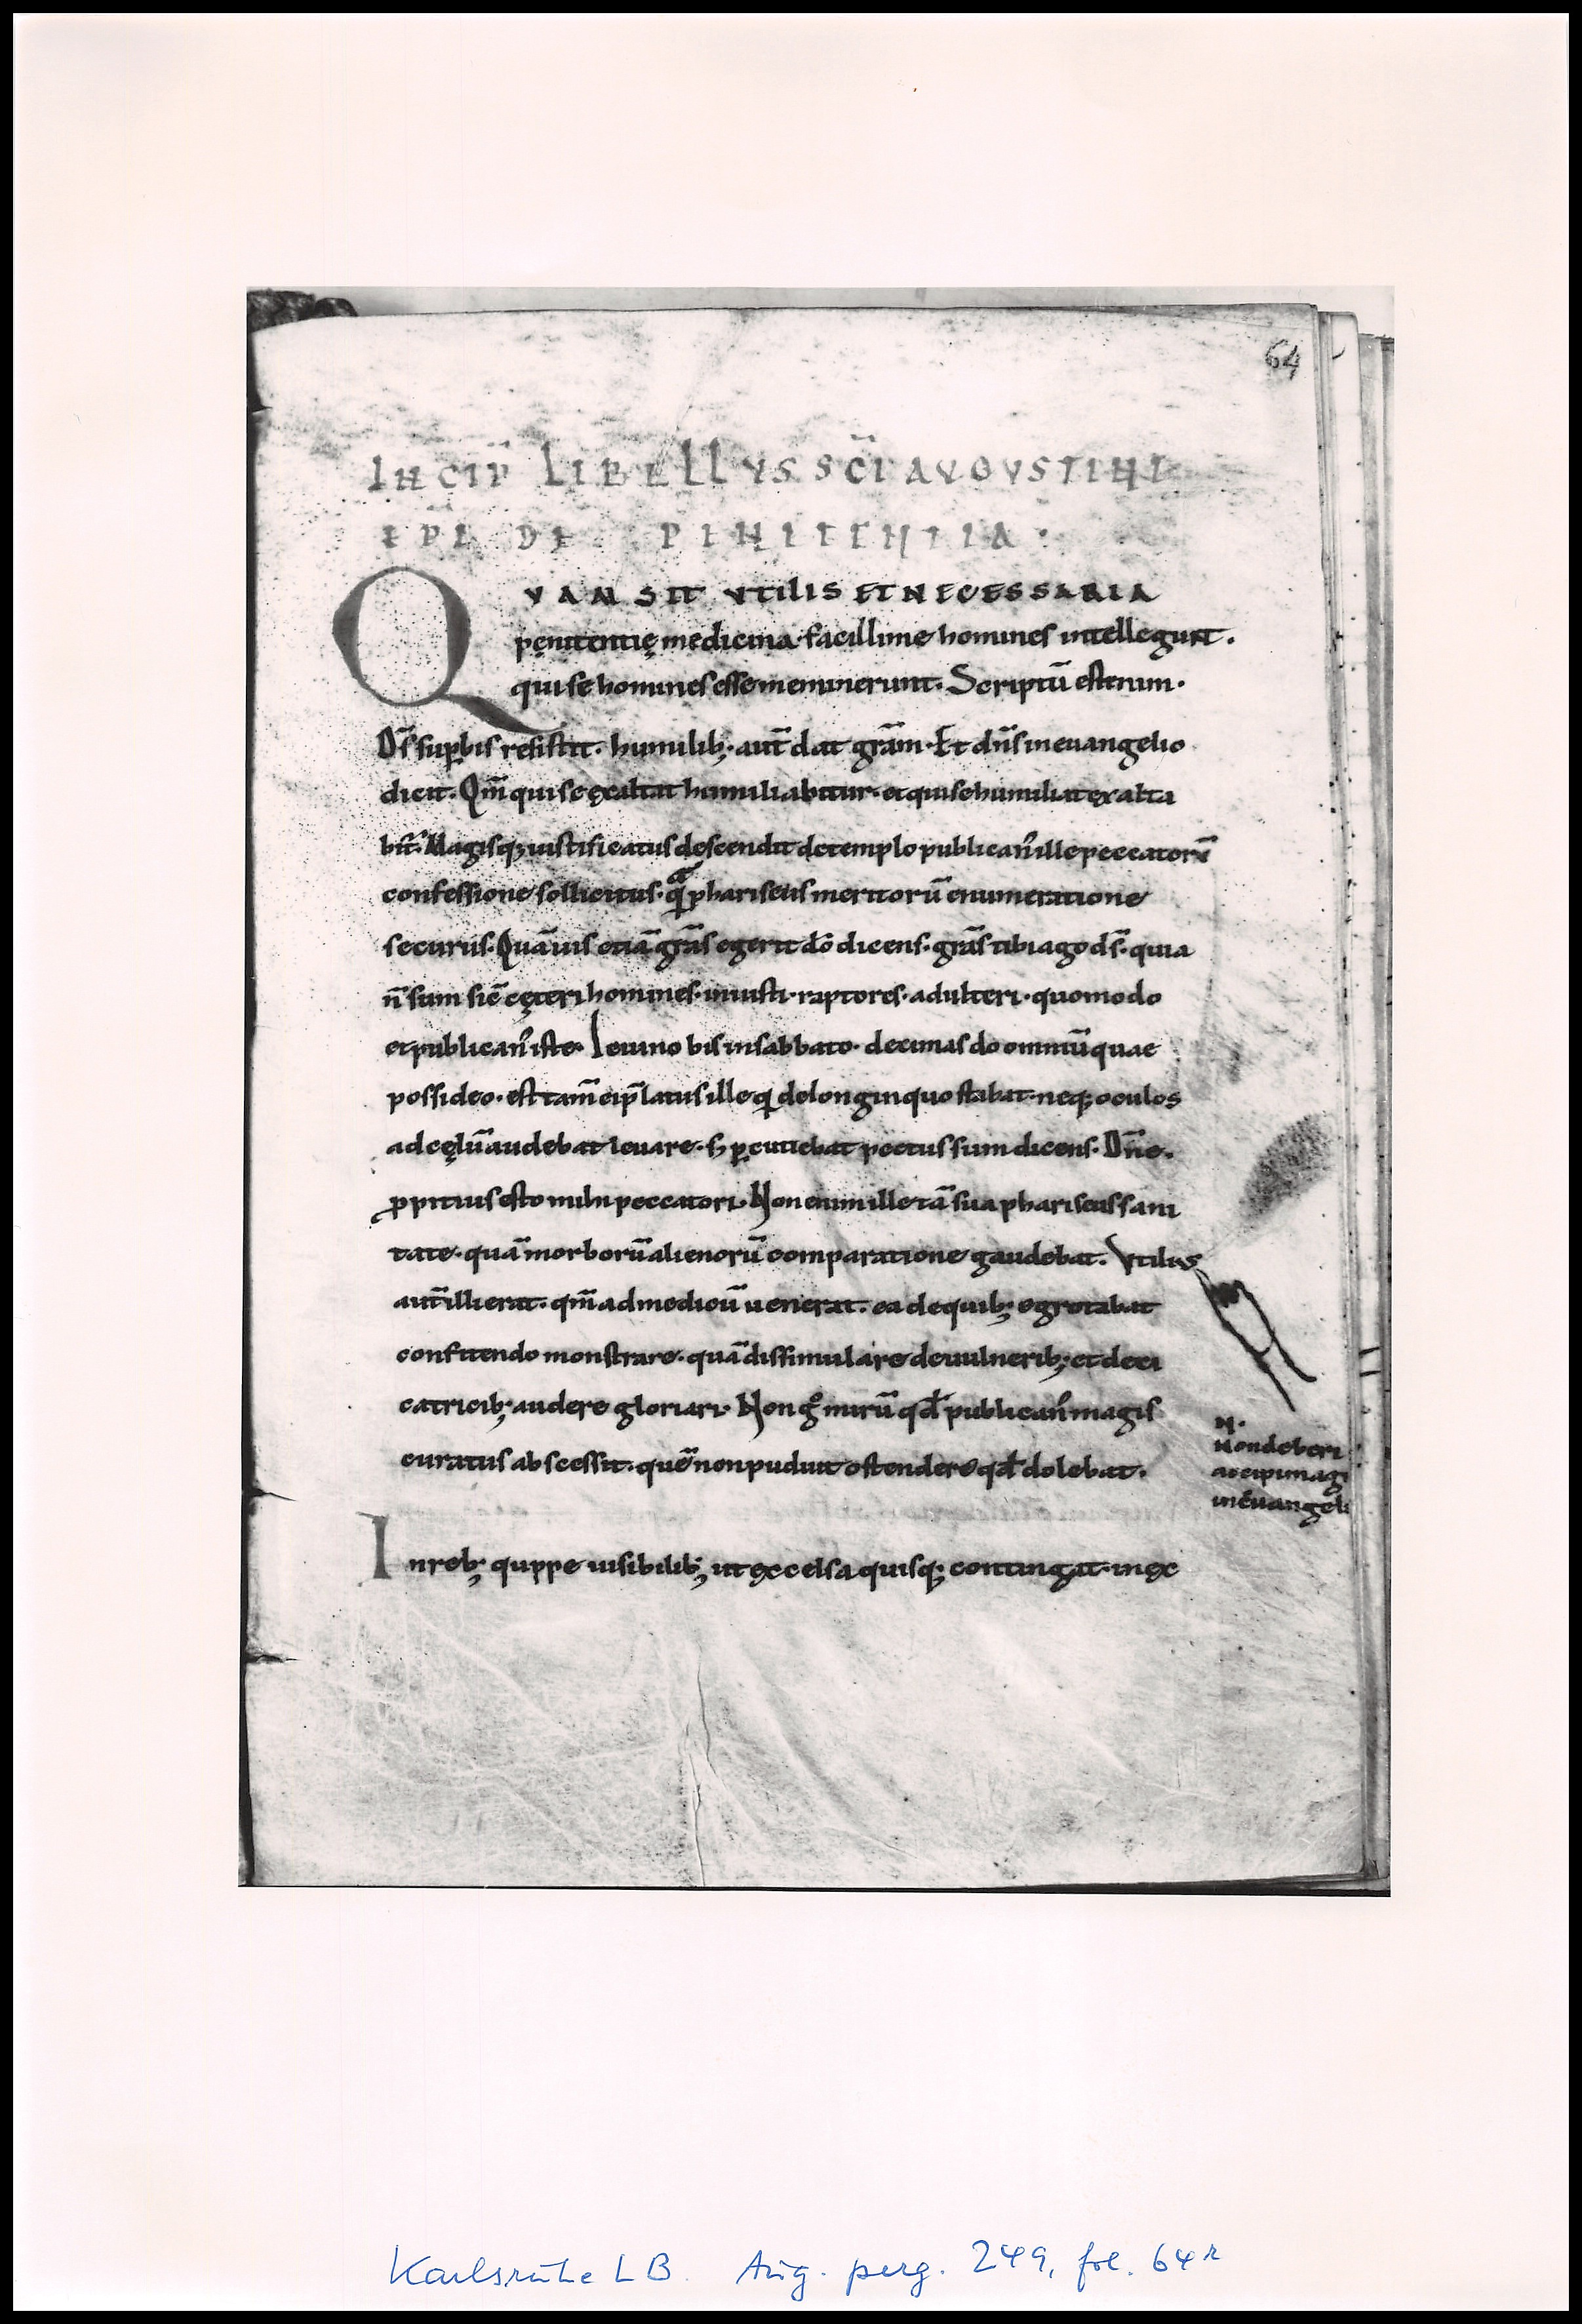 64
INCIP̅ LIBELLVS SC̅I AVGVSTINI
EPI̅ DE PENITENTIA·
QVAM SIT VTILIS ET NECESSARIA
pęnitentię medicina· facillime homines intellegunt·
qui se homines esse meminerunt· Scriptū est enim·
Ds̅ sup̱bis resistit· humilib; aut̅ dat gr̅am· Et dn̅s in euangelio
dicit· Qm̅ qui se exaltat humiliabitur· et qui se humiliat exalta
bit̅· Magisq; iustificatus descendit de templo publican᾽ ille peccatorū
confessione sollicitus· quā phariseus meritorū enumeratione
securus· Quāuis etiā gr̅as egerit dō dicens· gr̅as tibi ago ds̅· quia
n̅ sum sic̅ cęteri homines· iniusti· raptores· adulteri· quomodo
et publican᾽ iste· Ieiuno bis in sabbato· decimas do omniū quae
possideo· est tam̅ ei p̅latus ille qi de longinquo stabat· neq; oculos
ad cęlū audebat leuare· s; p̱cutiebat pectus suum dicens· Dn̅e·
ꝓpitius esto mihi peccatori· Non enim ille tā sua phariseus sani
tate· quā morborū alienorū comparatione gaudebat· Vtilius
aut̅ illi erat· qm̅ ad medicū uenerat· ea de quib; egrotabat
confitendo monstrare· quā dissimulare de uulnerib; et de ci
catricib; audere gloriari· Non gͦ mirū qd̅ publican᾽ magis
curatus abscessit· quē non puduit ostendere qd̅ dolebat·
N·
Non deberi
accipi magi
in euangeli
In reb; quippe uisibilib; ut excelsa quisq; contingat· in ex
Karlsruhe LB. Aug. perg. 249, fol. 64r